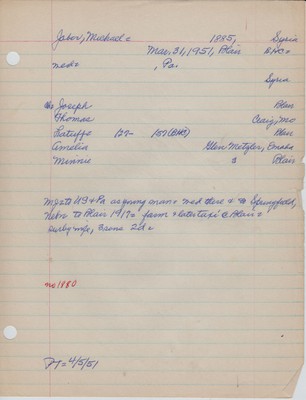 Jabor, Michael= 1885, Syria
Mar. 31, 1951, Blair BHC=
med= , Pa.
Syria
ch= Joseph Blair
Thomas Craig, Mo
Latiffe 127- 157 (BHS) Blair
Amelia Glen Metzler, Omaha
Minnie = Blair
Mg to US + Pa as young man= med there + to Springfield,
Nebr to Blair 1917= farm + later taxi @ Blair=
early mfg, Irene 2d=
no 1980
M= 4/5/51